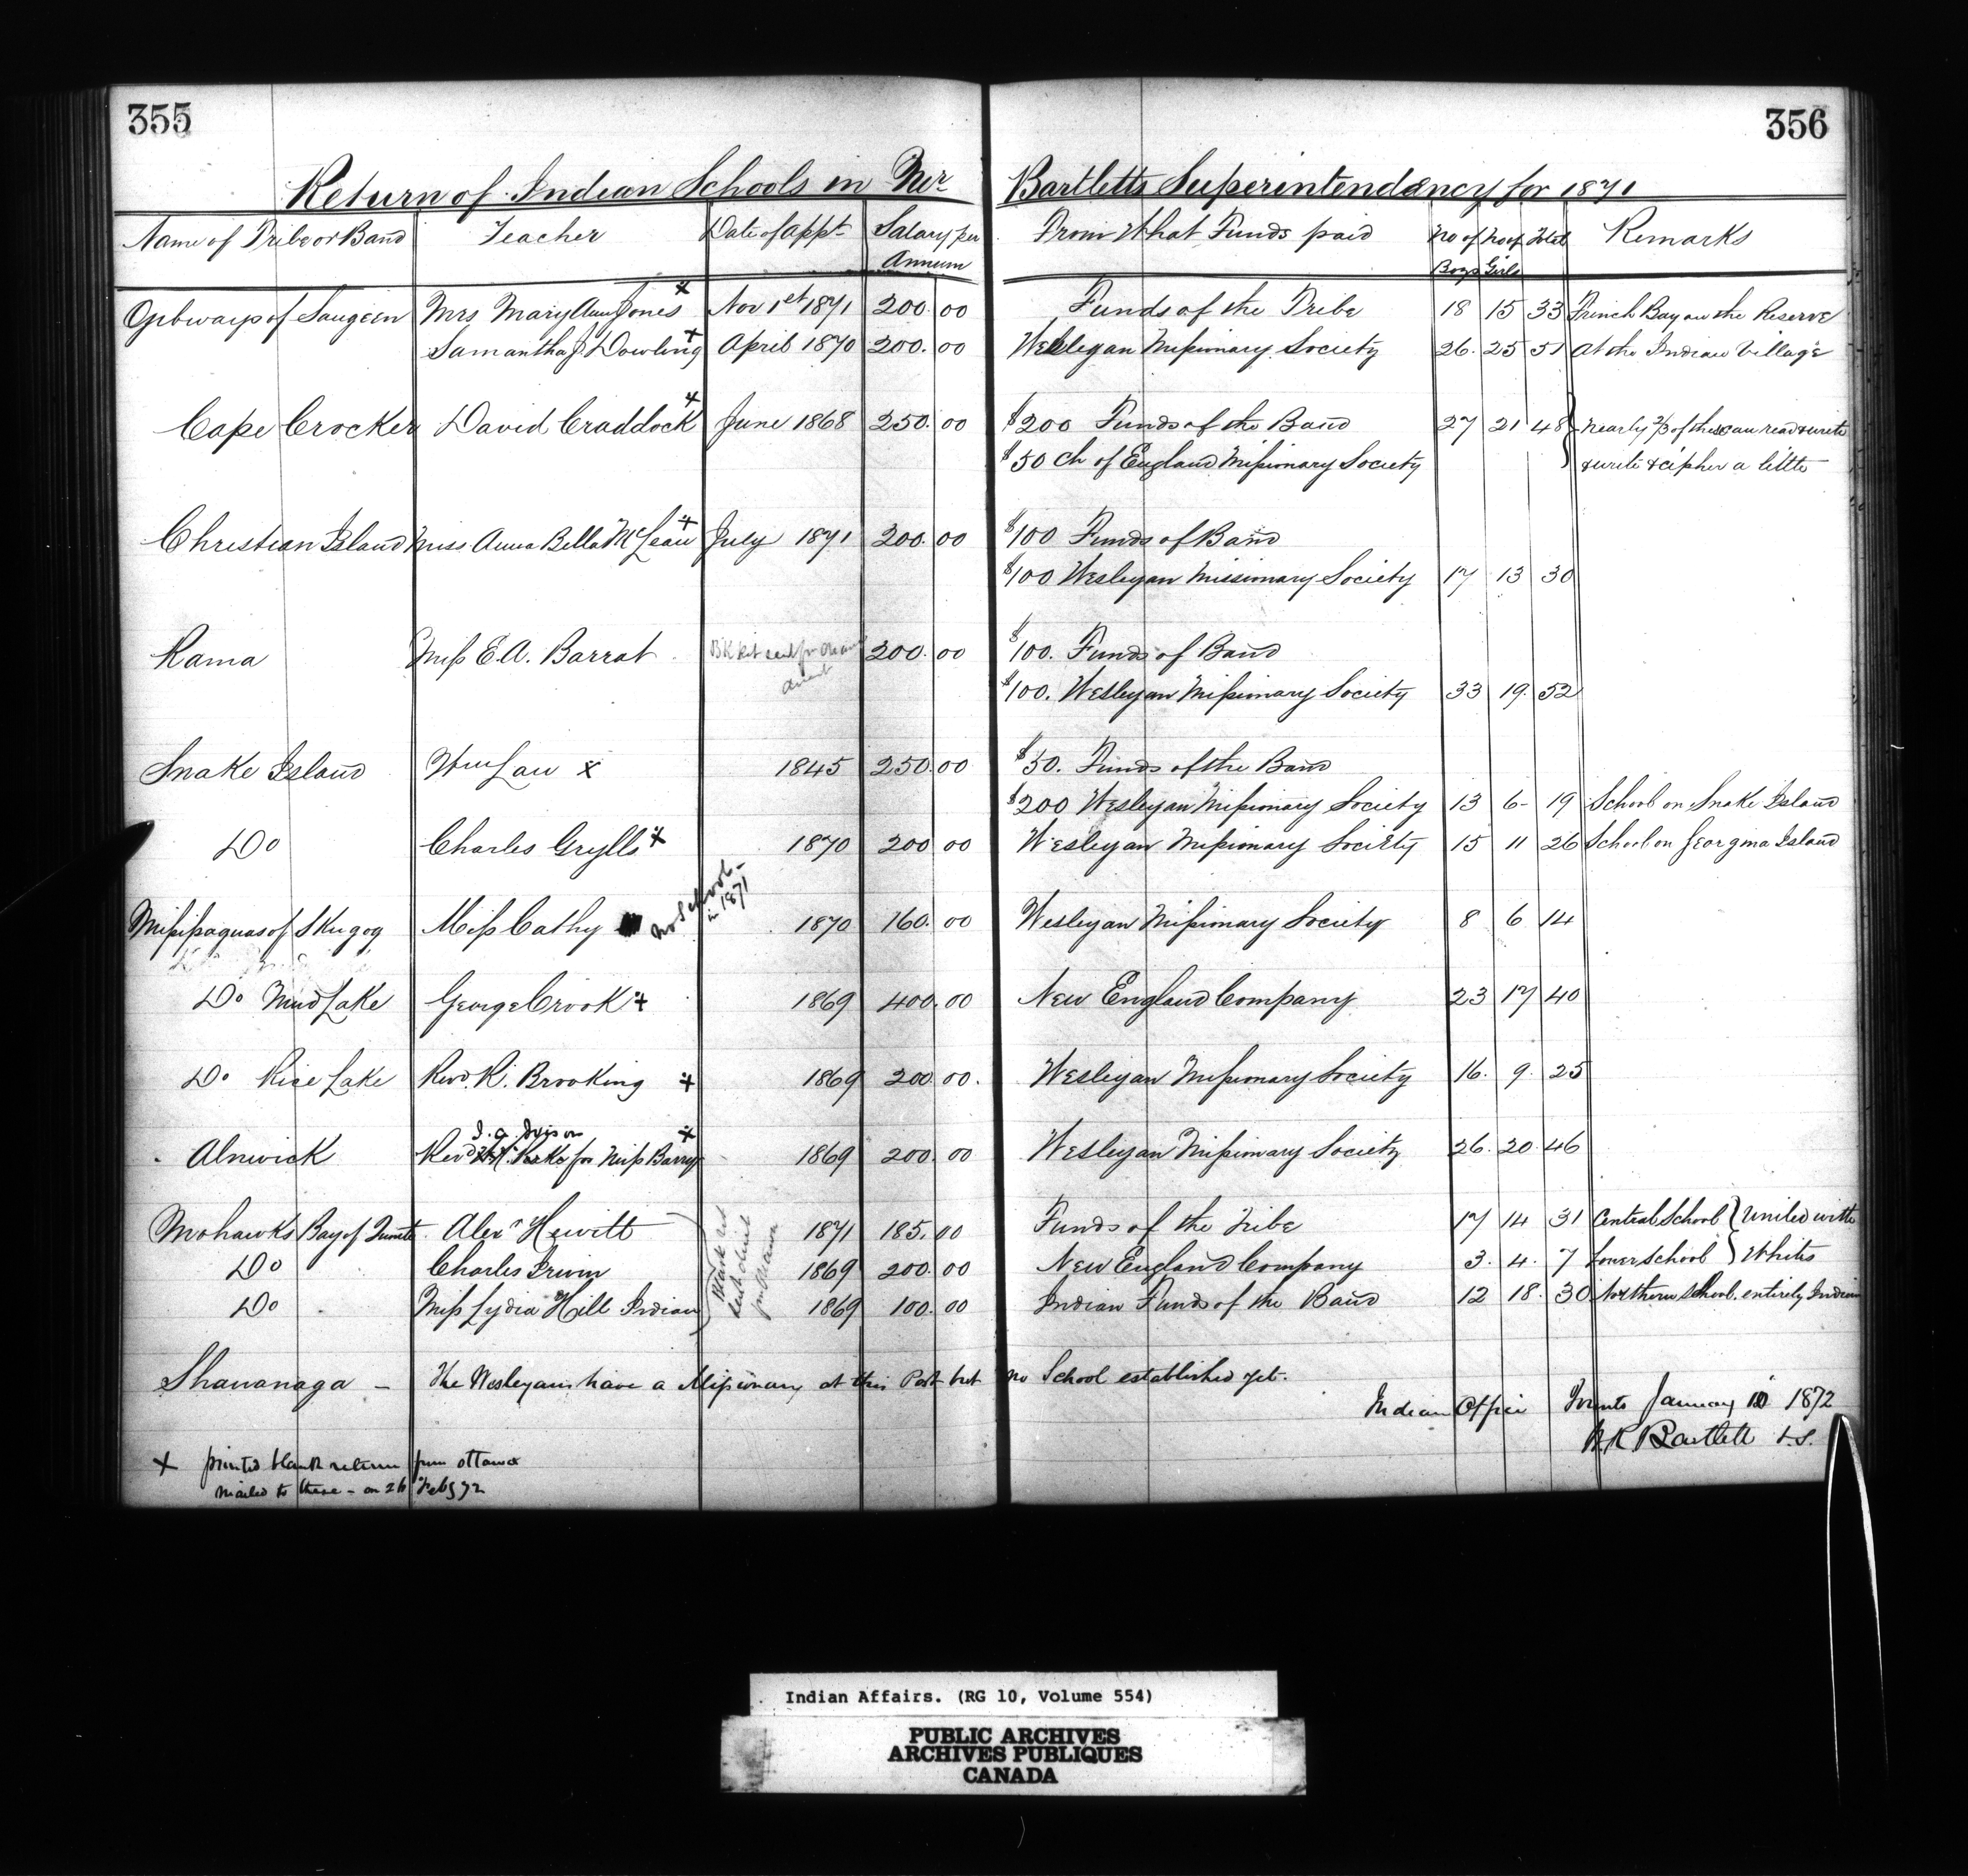 355
356
Return of Indian Schools in Mr Bartletts Superintendency for 1871
Name of Tribe or Band Teacher Date of Appt Salary per Annum From What Funds paid No of Boys No of Girls Total Remarks
Ojibways of Saugeen Mrs Mary Ann Jones x Nov 1st 1871 200.00 Funds of the Tribe 18 15 33 French Bay on the Reserve
Samantha J Dowling x April 1870 200.00 Wesleyan Missionary Society 26. 25 51 At the Indian Village
Cape Crocker David Craddock x June 1868 250.00 $200 Funds of the Band 27 21 48 nearly 2/3 of these can read & write
$50 Ch of England Missionary Society & write & cipher a little
Christian Island Miss Anna Bella McLean x July 1871 200.00 $100 Funds of Band
$100 Wesleyan Missionary Society 17 13 30
Rama Miss E.A. Barrat 200.00 $100. Funds of Band
$100. Wesleyan Missionary Society 33 19. 52
Snake Island Wm Law x 1845 250.00 $50. Funds of the Band
$200 Wesleyan Missionary Society 13 6- 19 School on Snake Island
Do Charles Grylls x 1870 200 00 Wesleyan Missionary Society 15 11 26 School on Georgina Island
Missisaguas of Skugog Miss Cathy No School - in 1871 1870 160.00 Wesleyan Missionary Society 8 6 14
Do Mud Lake George Crook x 1869 400.00 New England Company 23 17 40
Do Rice Lake Revd. R. Brooking x 1869 200 00. Wesleyan Missionary Society 16. 9. 25
Alnwick Revd for Miss Barry x 1869 200.00 Wesleyan Missionary Society 26. 20. 46
Mohawks Bay of Quinte Alexr Hewitt 1871 185.00 Funds of the Tribe 17 14 31 Central School } United with
Do Charles Irwin 1869 200.00 New England Company 3. 4. 7 Lower School } Whites
Do Miss Lydia Hill Indian 1869 100.00 Indian Funds of the Band 12 18. 30 Northern School. entirely Indian
Shawanaga - The Wesleyans have a Missionary at this Post but no School established yet.
Indian Office Toronto January 10 1872
W R Bartlett V.S.
x printed blank return from Ottawa
mailed to these - on 26 Feby 72
Indian Affairs. (RG 10, Volume 554)
PUBLIC ARCHIVES
ARCHIVES PUBLIQUES
CANADA